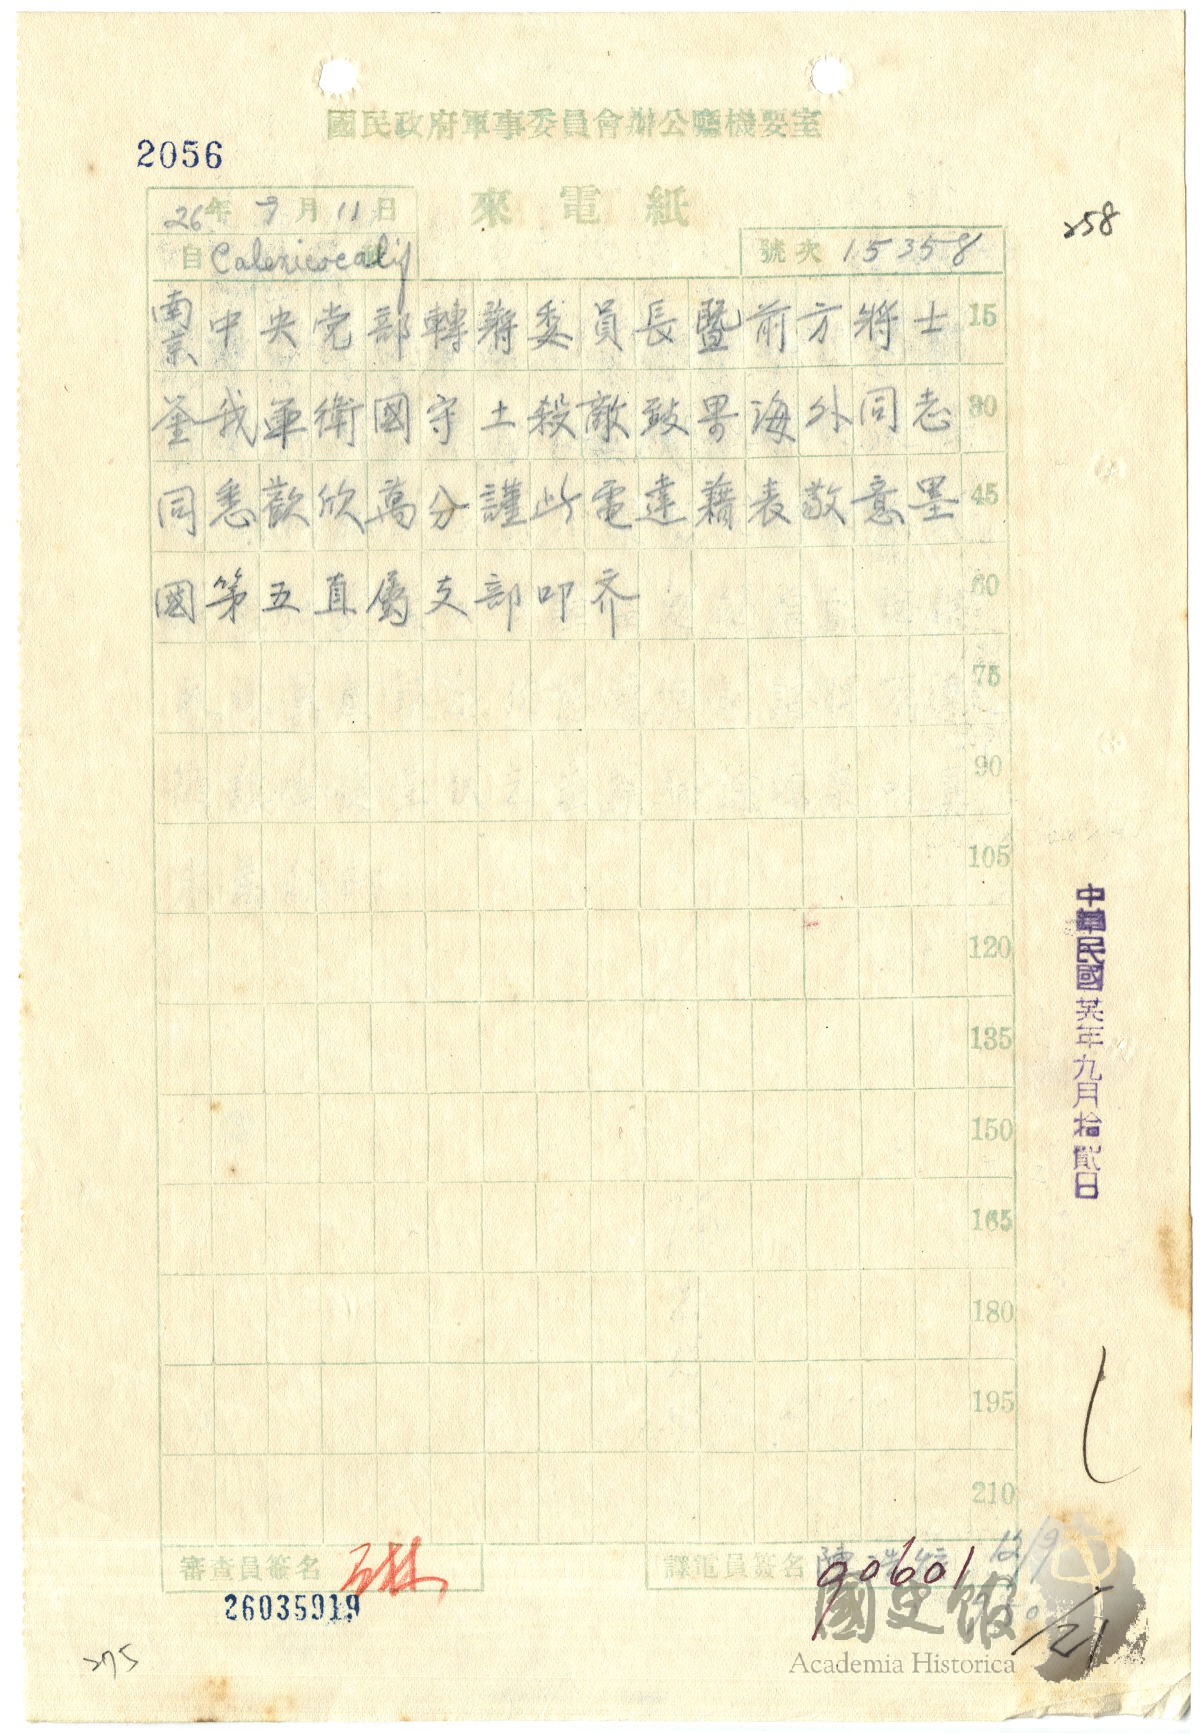 國民政府軍事委員會辦公廳機要室
2056
來電紙
258
26年9月11日
自Calexicocalif
號次 15358
南京中央党部轉蔣委員長暨前方將士 15
鉴我軍衛國守土殺敵致果海外同志 30
同悉歡欣萬分謹此電達藉表敬意墨 45
國第五直属支部叩齐 60
75
90
105
120
135
150
165
180
195
210
中華民國 廿六年九月拾貳日
審查員簽名
譯電員簽名 陳
12/9
90601
26035919
275
國史館
Academia Historica